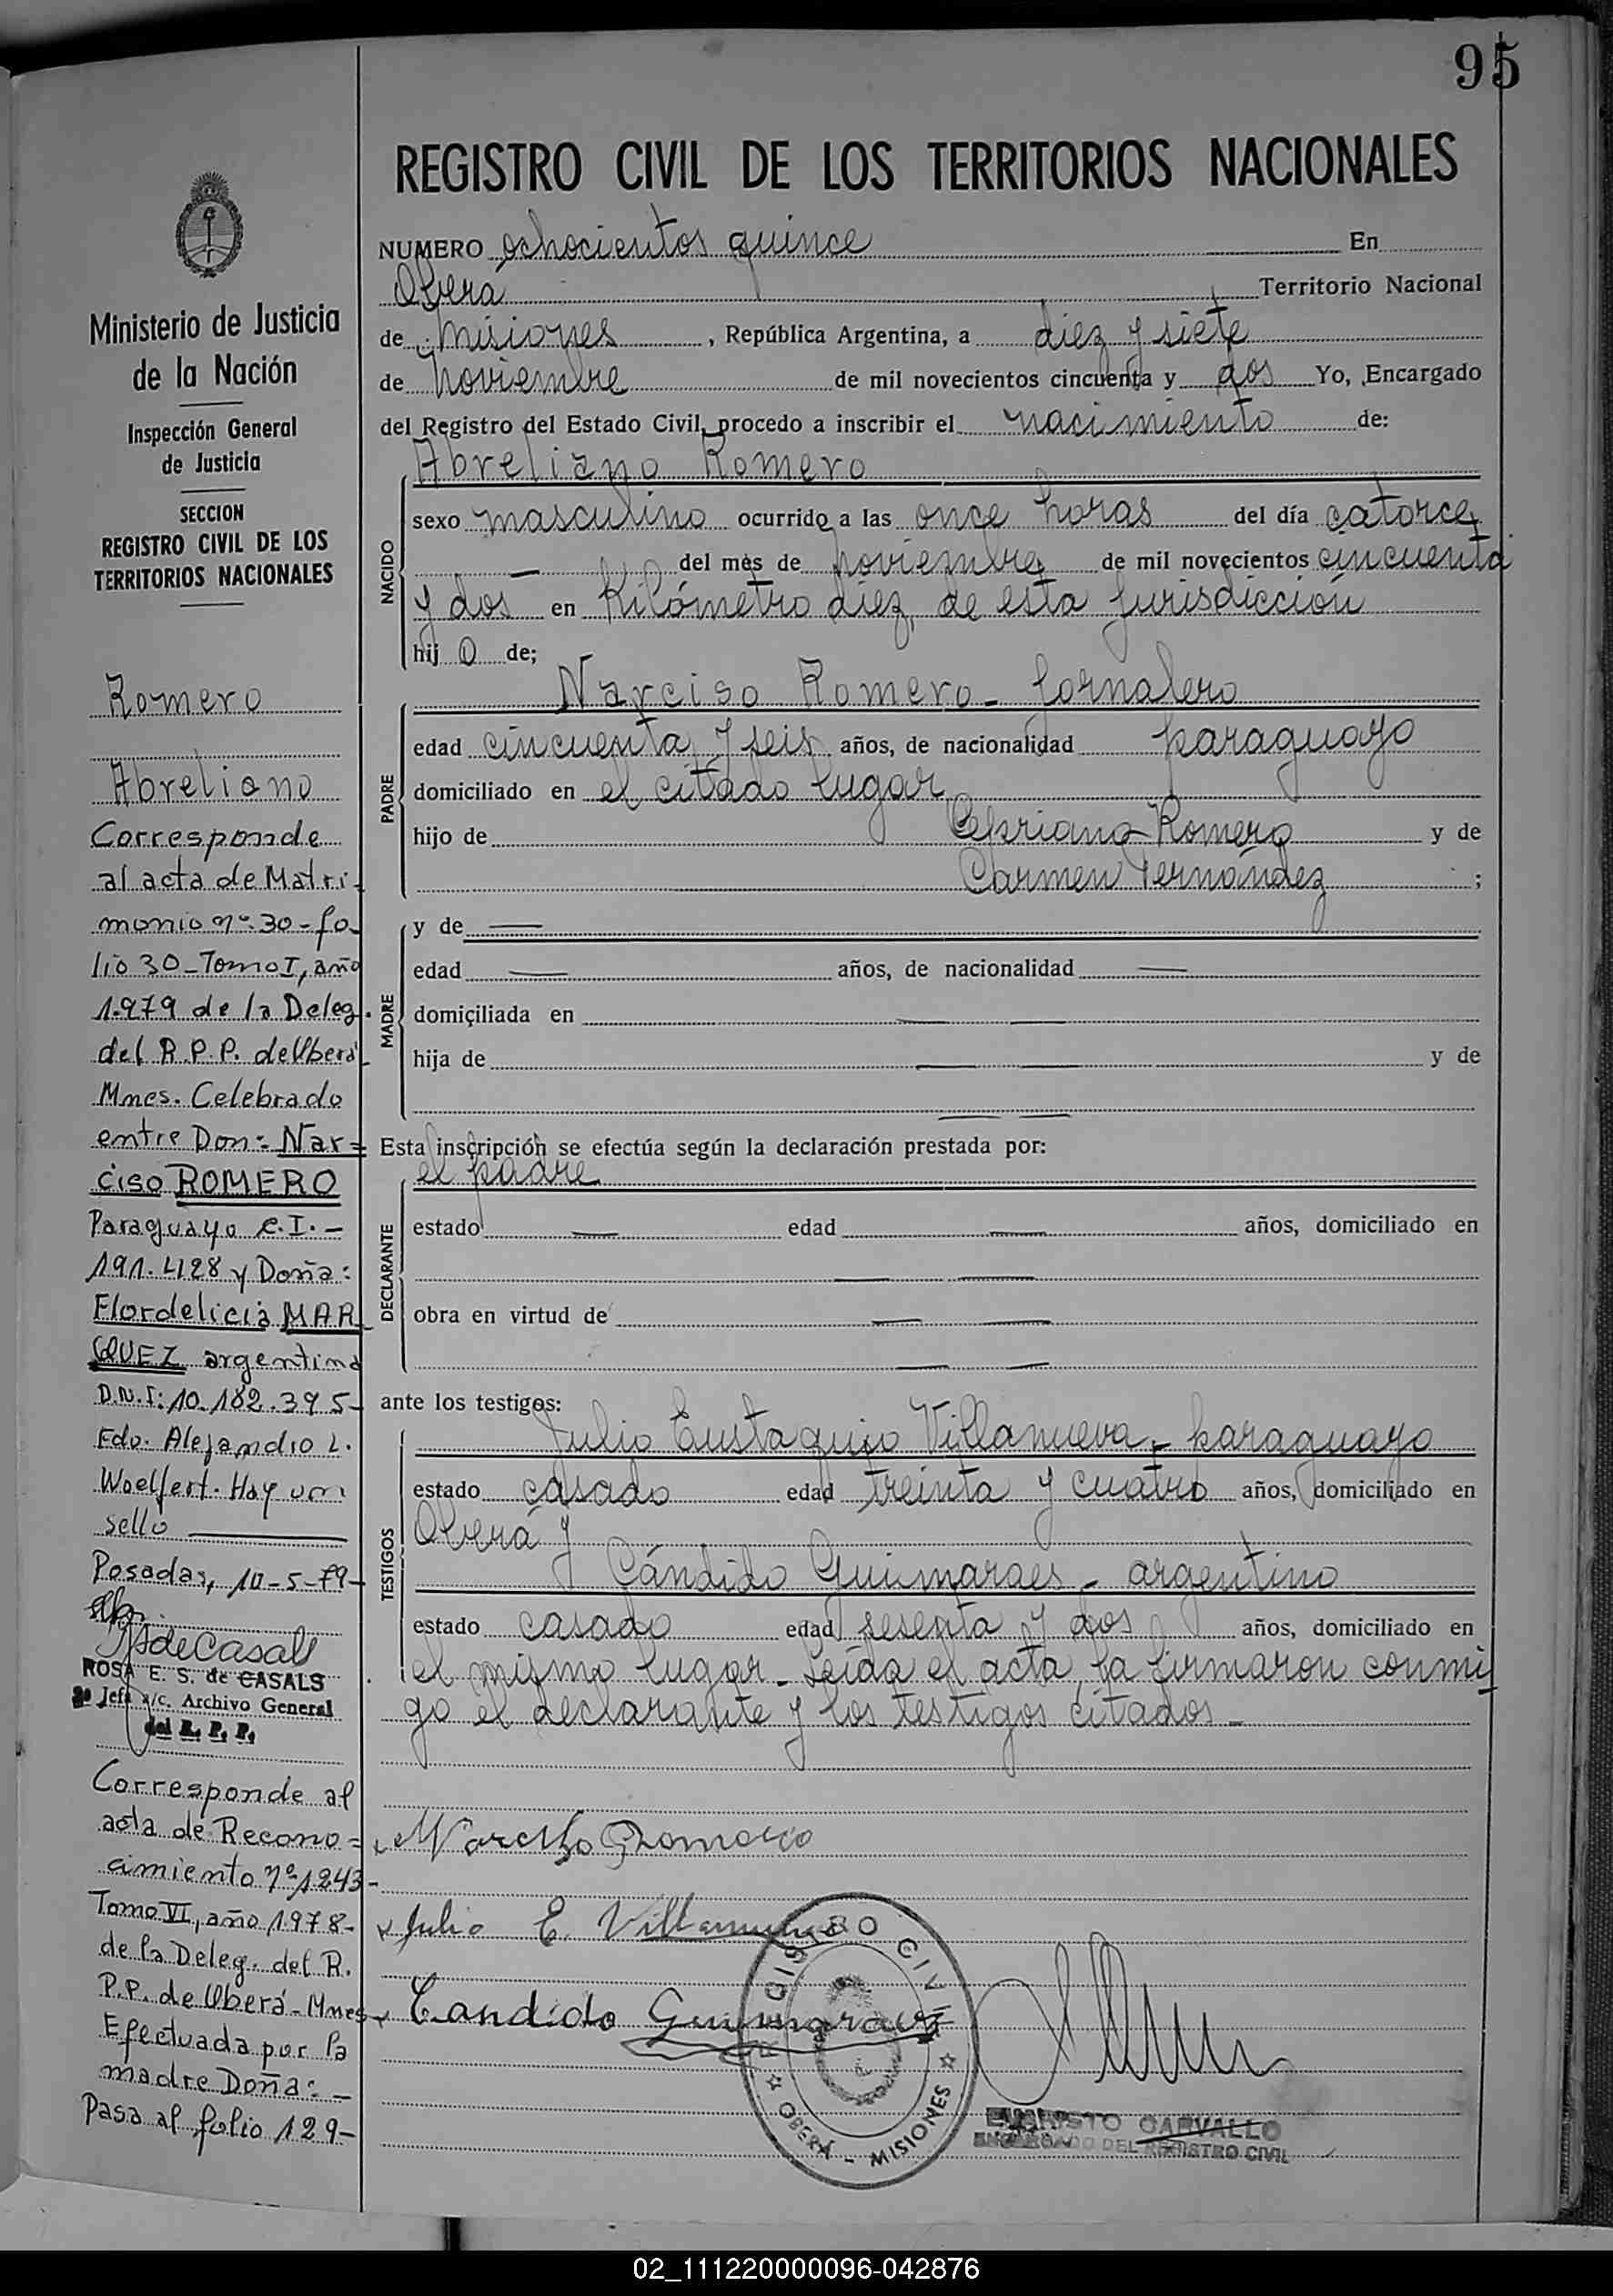 95
REGISTRO CIVIL DE LOS TERRITORIOS NACIONALES
NUMERO ochocientos quince En
Oberá Territorio Nacional
de Misiones, República Argentina, a diez y siete
de noviembre de mil novecientos cincuenta y dos Yo, Encargado
del Registro del Estado Civil, procedo a inscribir el nacimiento de:
Abreliano Romero
NACIDO
sexo masculino ocurrido a las once horas del día catorce
— del mes de noviembre de mil novecientos cincuenta
y dos en Kilómetro diez, de esta jurisdicción
hijo de;
PADRE
Narciso Romero - jornalero
edad cincuenta y seis años, de nacionalidad paraguayo
domiciliado en el citado lugar
hijo de Cipriano Romero y de
Carmen Fernández ;
MADRE
y de —
edad — años, de nacionalidad —
domiciliada en — —
hija de — — y de
— —
Esta inscripción se efectúa según la declaración prestada por:
DECLARANTE
el padre
estado — edad — años, domiciliado en
— —
obra en virtud de — —
— —
ante los testigos:
TESTIGOS
Julio Eustaquio Villanueva - paraguayo
estado casado edad treinta y cuatro años, domiciliado en
Oberá y
Cándido Guimaraes - argentino
estado casado edad sesenta y dos años, domiciliado en
el mismo lugar - Leída el acta, la firmaron conmi
go el declarante y los testigos citados -
Narciso Romero
Julio E. Villanueva
Candido Guimaraes
REGISTRO CIVIL
OBERÁ - MISIONES
EVARISTO CARVALLO
ENCARGADO DEL REGISTRO CIVIL
Ministerio de Justicia
de la Nación
Inspección General
de Justicia
SECCION
REGISTRO CIVIL DE LOS
TERRITORIOS NACIONALES
Romero
Abreliano
Corresponde
al acta de Matri-
monio nº 30 - fo-
lio 30 - Tomo I, año
1.979 de la Deleg.
del R.P.P. de Oberá -
Mnes. Celebrado
entre Don: Nar=
ciso ROMERO
Paraguayo C.I. -
191.428 y Doña:
Flordelicia MAR-
QUEZ argentina
D.N.I: 10.182.395 -
Fdo. Alejandro L.
Woelfert. Hay un
sello —
Posadas, 10-5-79 -
ROSA E. S. de CASALS
2º Jefe a/c. Archivo General
del R. P. P.
Corresponde al
acta de Recono=
cimiento nº 1243 -
Tomo VI, año 1978 -
de la Deleg. del R.
P.P. de Oberá - Mnes
Efectuada por la
madre Doña: -
Pasa al folio 129 -
02_111220000096-042876